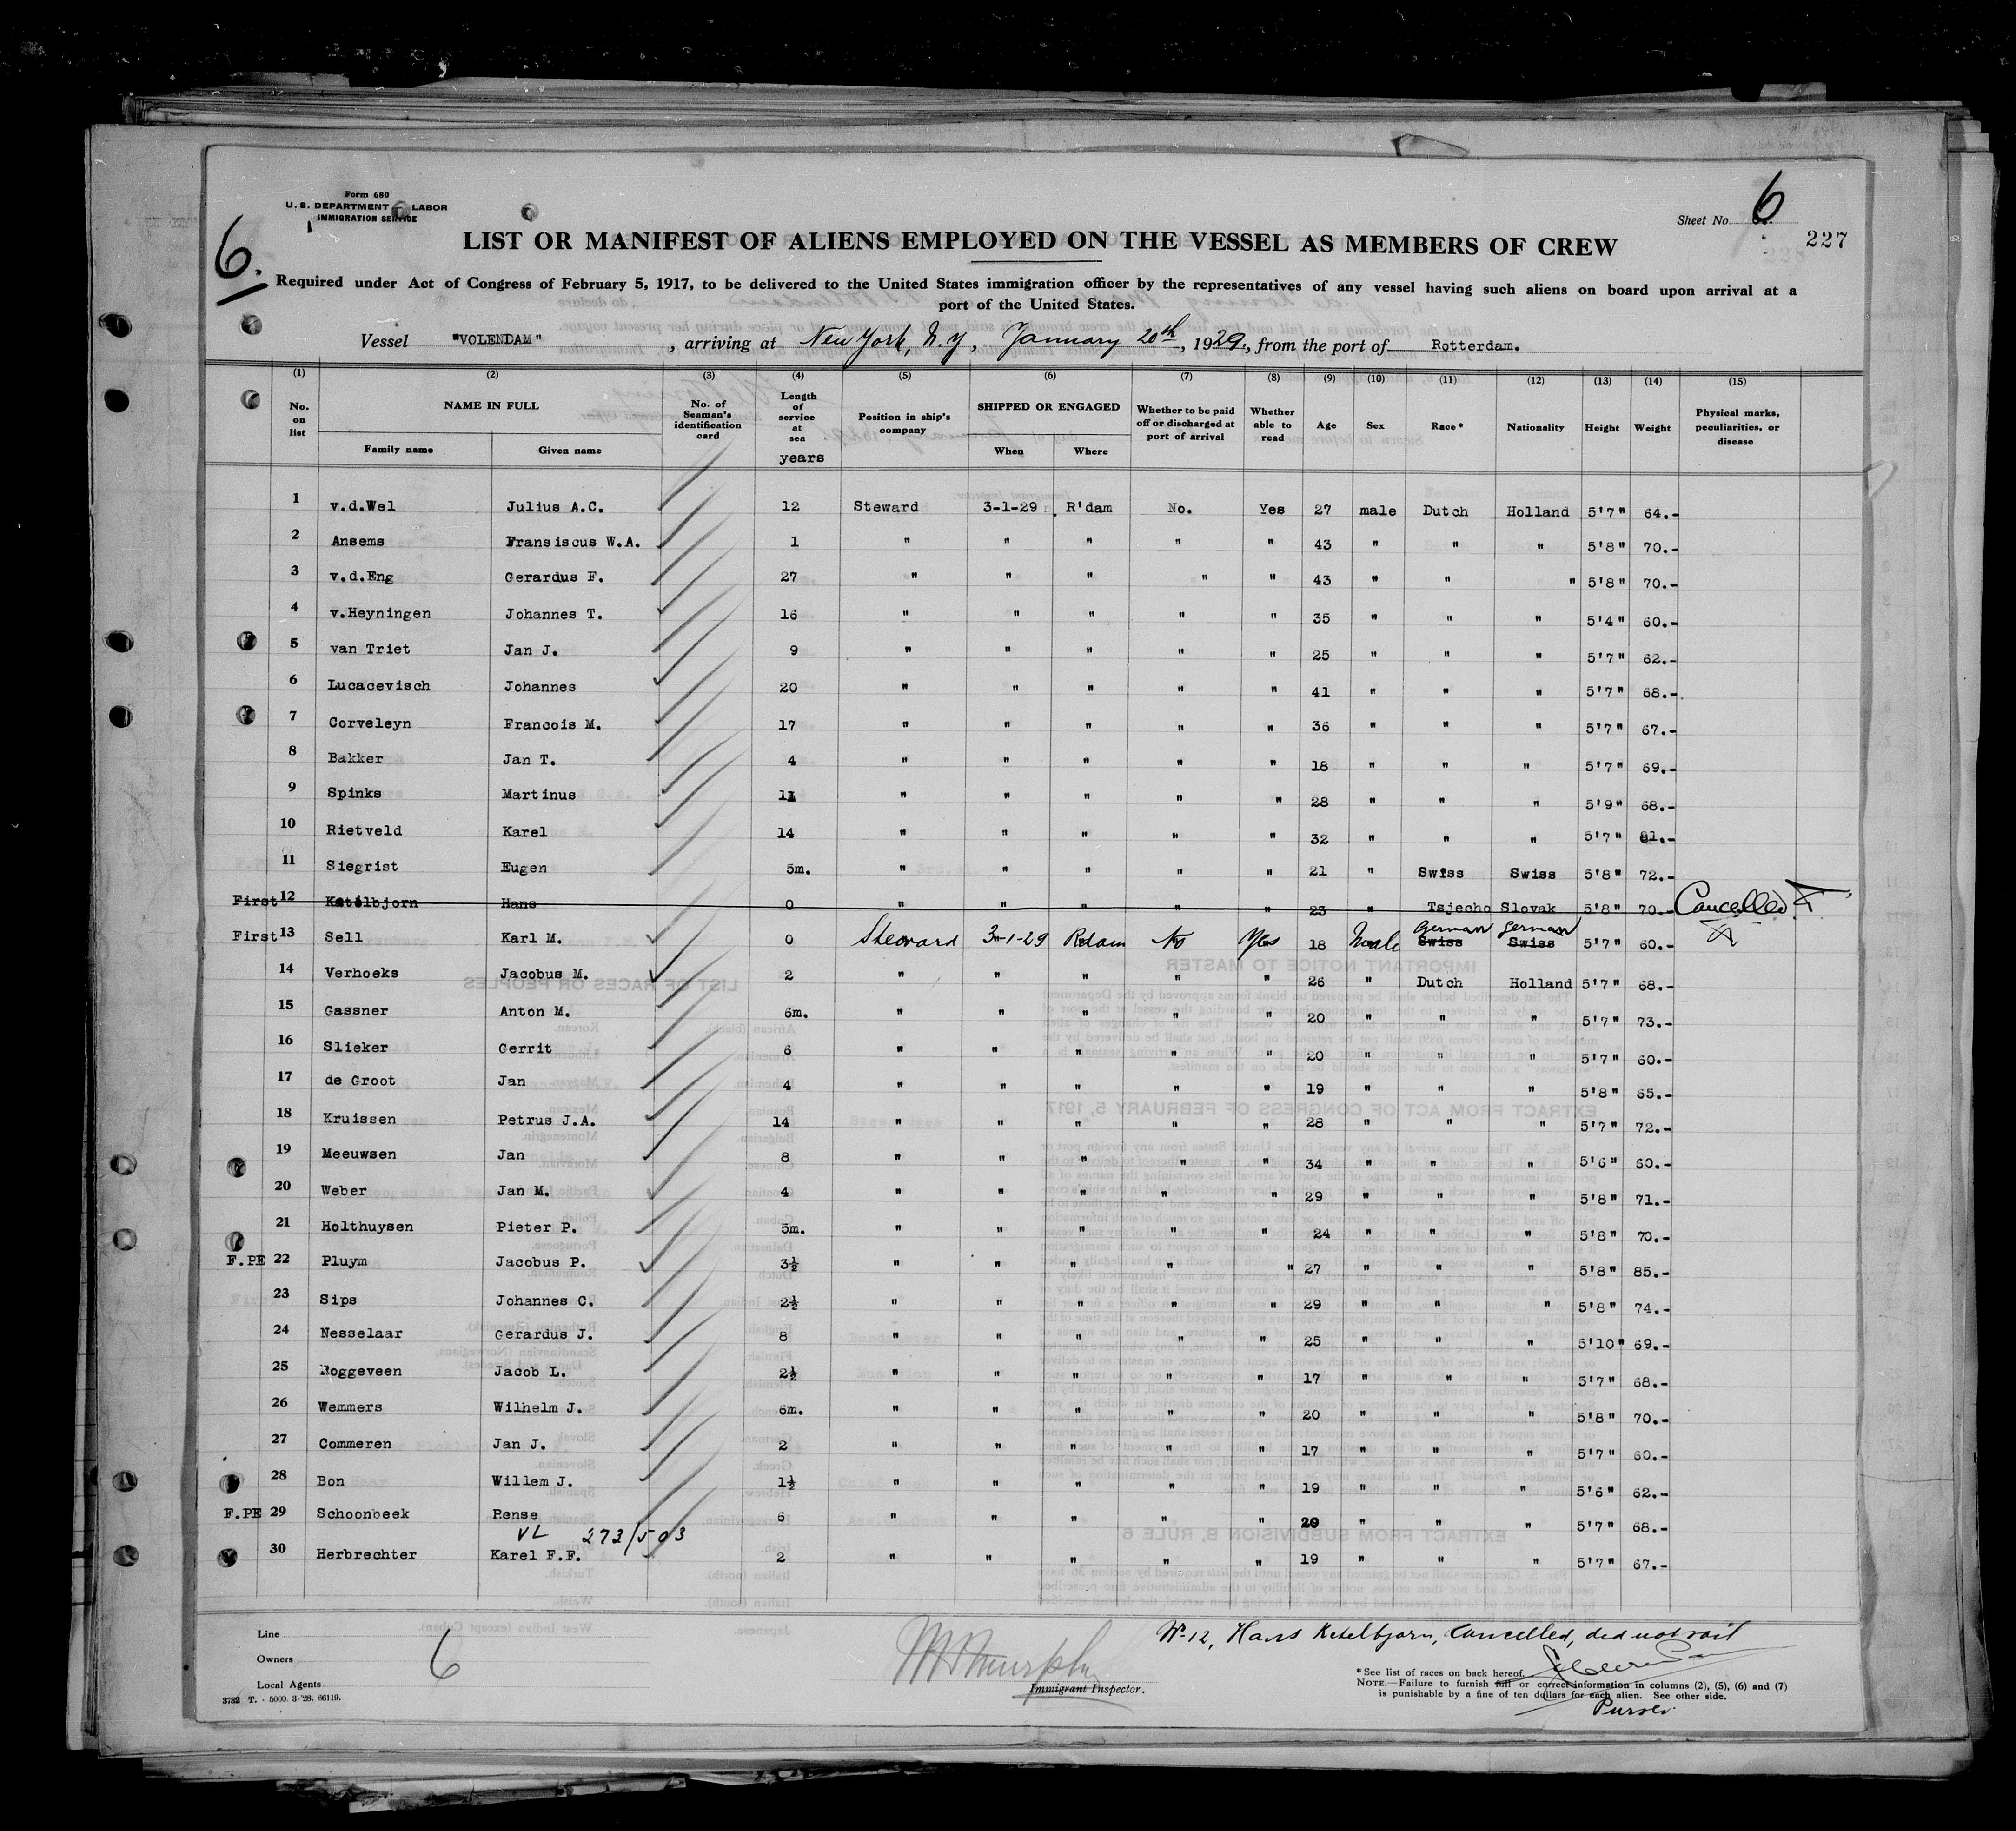 Form 680
U. S. DEPARTMENT LABOR
IMMIGRATION SERVICE
6.
Sheet No. 6
227
LIST OR MANIFEST OF ALIENS EMPLOYED ON THE VESSEL AS MEMBERS OF CREW
Required under Act of Congress of February 5, 1917, to be delivered to the United States immigration officer by the representatives of any vessel having such aliens on board upon arrival at a
port of the United States.
Vessel "VOLENDAM", arriving at New York, N.Y., January 20th, 1929, from the port of Rotterdam.
(1) (2) (3) (4) (5) (6) (7) (8) (9) (10) (11) (12) (13) (14) (15)
No. on list NAME IN FULL Family name Given name No. of Seaman's identification card Length of service at sea years Position in ship's company SHIPPED OR ENGAGED When Where Whether to be paid off or discharged at port of arrival Whether able to read Age Sex Race* Nationality Height Weight Physical marks, peculiarities, or disease
1 v.d.Wel Julius A.C. 12 Steward 3-1-29 R'dam No. Yes 27 male Dutch Holland 5'7" 64.-
2 Ansems Fransiscus W.A. 1 " " " " " 43 " " " 5'8" 70.-
3 v.d.Eng Gerardus F. 27 " " " " " 43 " " " 5'8" 70.-
4 v.Heyningen Johannes T. 16 " " " " " 35 " " " 5'4" 60.-
5 van Triet Jan J. 9 " " " " " 25 " " " 5'7" 62.-
6 Lucacevisch Johannes 20 " " " " " 41 " " " 5'7" 68.-
7 Corveleyn Francois M. 17 " " " " " 36 " " " 5'7" 67.-
8 Bakker Jan T. 4 " " " " " 18 " " " 5'7" 69.-
9 Spinks Martinus " " " " " 28 " " " 5'9" 68.-
10 Rietveld Karel 14 " " " " " 32 " " " 5'7" 81.-
11 Siegrist Eugen 5m. " " " " " 21 " Swiss Swiss 5'8" 72.-
First 12 Ketilbjorn Hans 0 " " " " " 23 " Tsjecho Slovak 5'8" 70.- Cancelled
First 13 Sell Karl M. 0 Steward 3-1-29 Rdam No Yes 18 Male German Swiss German Swiss 5'7" 60.-
14 Verhoeks Jacobus M. 2 " " " " " 26 " Dutch Holland 5'7" 68.-
15 Gassner Anton M. 6m. " " " " " 20 " " " 5'7" 73.-
16 Slieker Gerrit 6 " " " " " 20 " " " 5'7" 60.-
17 de Groot Jan 4 " " " " " 19 " " " 5'8" 65.-
18 Kruissen Petrus J.A. 14 " " " " " 28 " " " 5'7" 72.-
19 Meeuwsen Jan 8 " " " " " 34 " " " 5'6" 60.-
20 Weber Jan M. 4 " " " " " 29 " " " 5'8" 71.-
21 Holthuysen Pieter P. 5m. " " " " " 24 " " " 5'8" 70.-
F.PE 22 Pluym Jacobus P. 3½ " " " " " 27 " " " 5'8" 85.-
23 Sips Johannes C. 2½ " " " " " 29 " " " 5'8" 74.-
24 Nesselaar Gerardus J. 8 " " " " " 25 " " " 5'10" 69.-
25 Roggeveen Jacob L. 2½ " " " " " 17 " " " 5'7" 68.-
26 Wemmers Wilhelm J. 6m. " " " " " 20 " " " 5'8" 70.-
27 Commeren Jan J. 2 " " " " " 17 " " " 5'7" 60.-
28 Bon Willem J. 1½ " " " " " 19 " " " 5'6" 62.-
F.PE 29 Schoonbeek Rense 6 " " " " " 20 " " " 5'7" 68.-
VL 273/503
30 Herbrechter Karel F.F. 2 " " " " " 19 " " " 5'7" 67.-
No 12, Hans Ketelbjorn, Cancelled, did not sail
Line
Owners 6
Local Agents
3782 T. - 5000. 3-'28. 66119.
Murphy
Immigrant Inspector.
*See list of races on back hereof.
NOTE.—Failure to furnish full or correct information in columns (2), (5), (6) and (7)
is punishable by a fine of ten dollars for each alien. See other side.
Purser